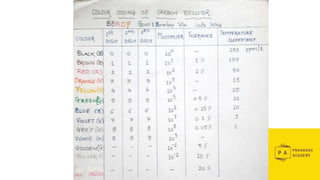 COLOUR CODING OF CARBON RESISTOR
BBROY Great Bombay Via Gate Way
COLOUR 1ST DIGIT 2ND DIGIT 3RD DIGIT MULTIPLIER TOLERANCE TEMPERATURE COEFFICIENT
BLACK (B) 0 0 0 10⁰ – 250 ppm/k
BROWN (B) 1 1 1 10¹ 1% 100
RED (R) 2 2 2 10² 2% 50
ORANGE (O) 3 3 3 10³ – 15
YELLOW (Y) 4 4 4 10⁴ – 25
GREEN (G) 5 5 5 10⁵ 0.5% 20
BLUE (B) 6 6 6 10⁶ 0.25% 10
VIOLET (V) 7 7 7 10⁷ 0.1% 5
GREY (G) 8 8 8 10⁸ 0.05% 1
WHITE (W) 9 9 9 10⁹ –
GOLDEN (G) 10⁻¹ 5%
SILVER 10⁻² 10%
NO COLOUR 20%
PA
PRAKARSH
ACADEMY